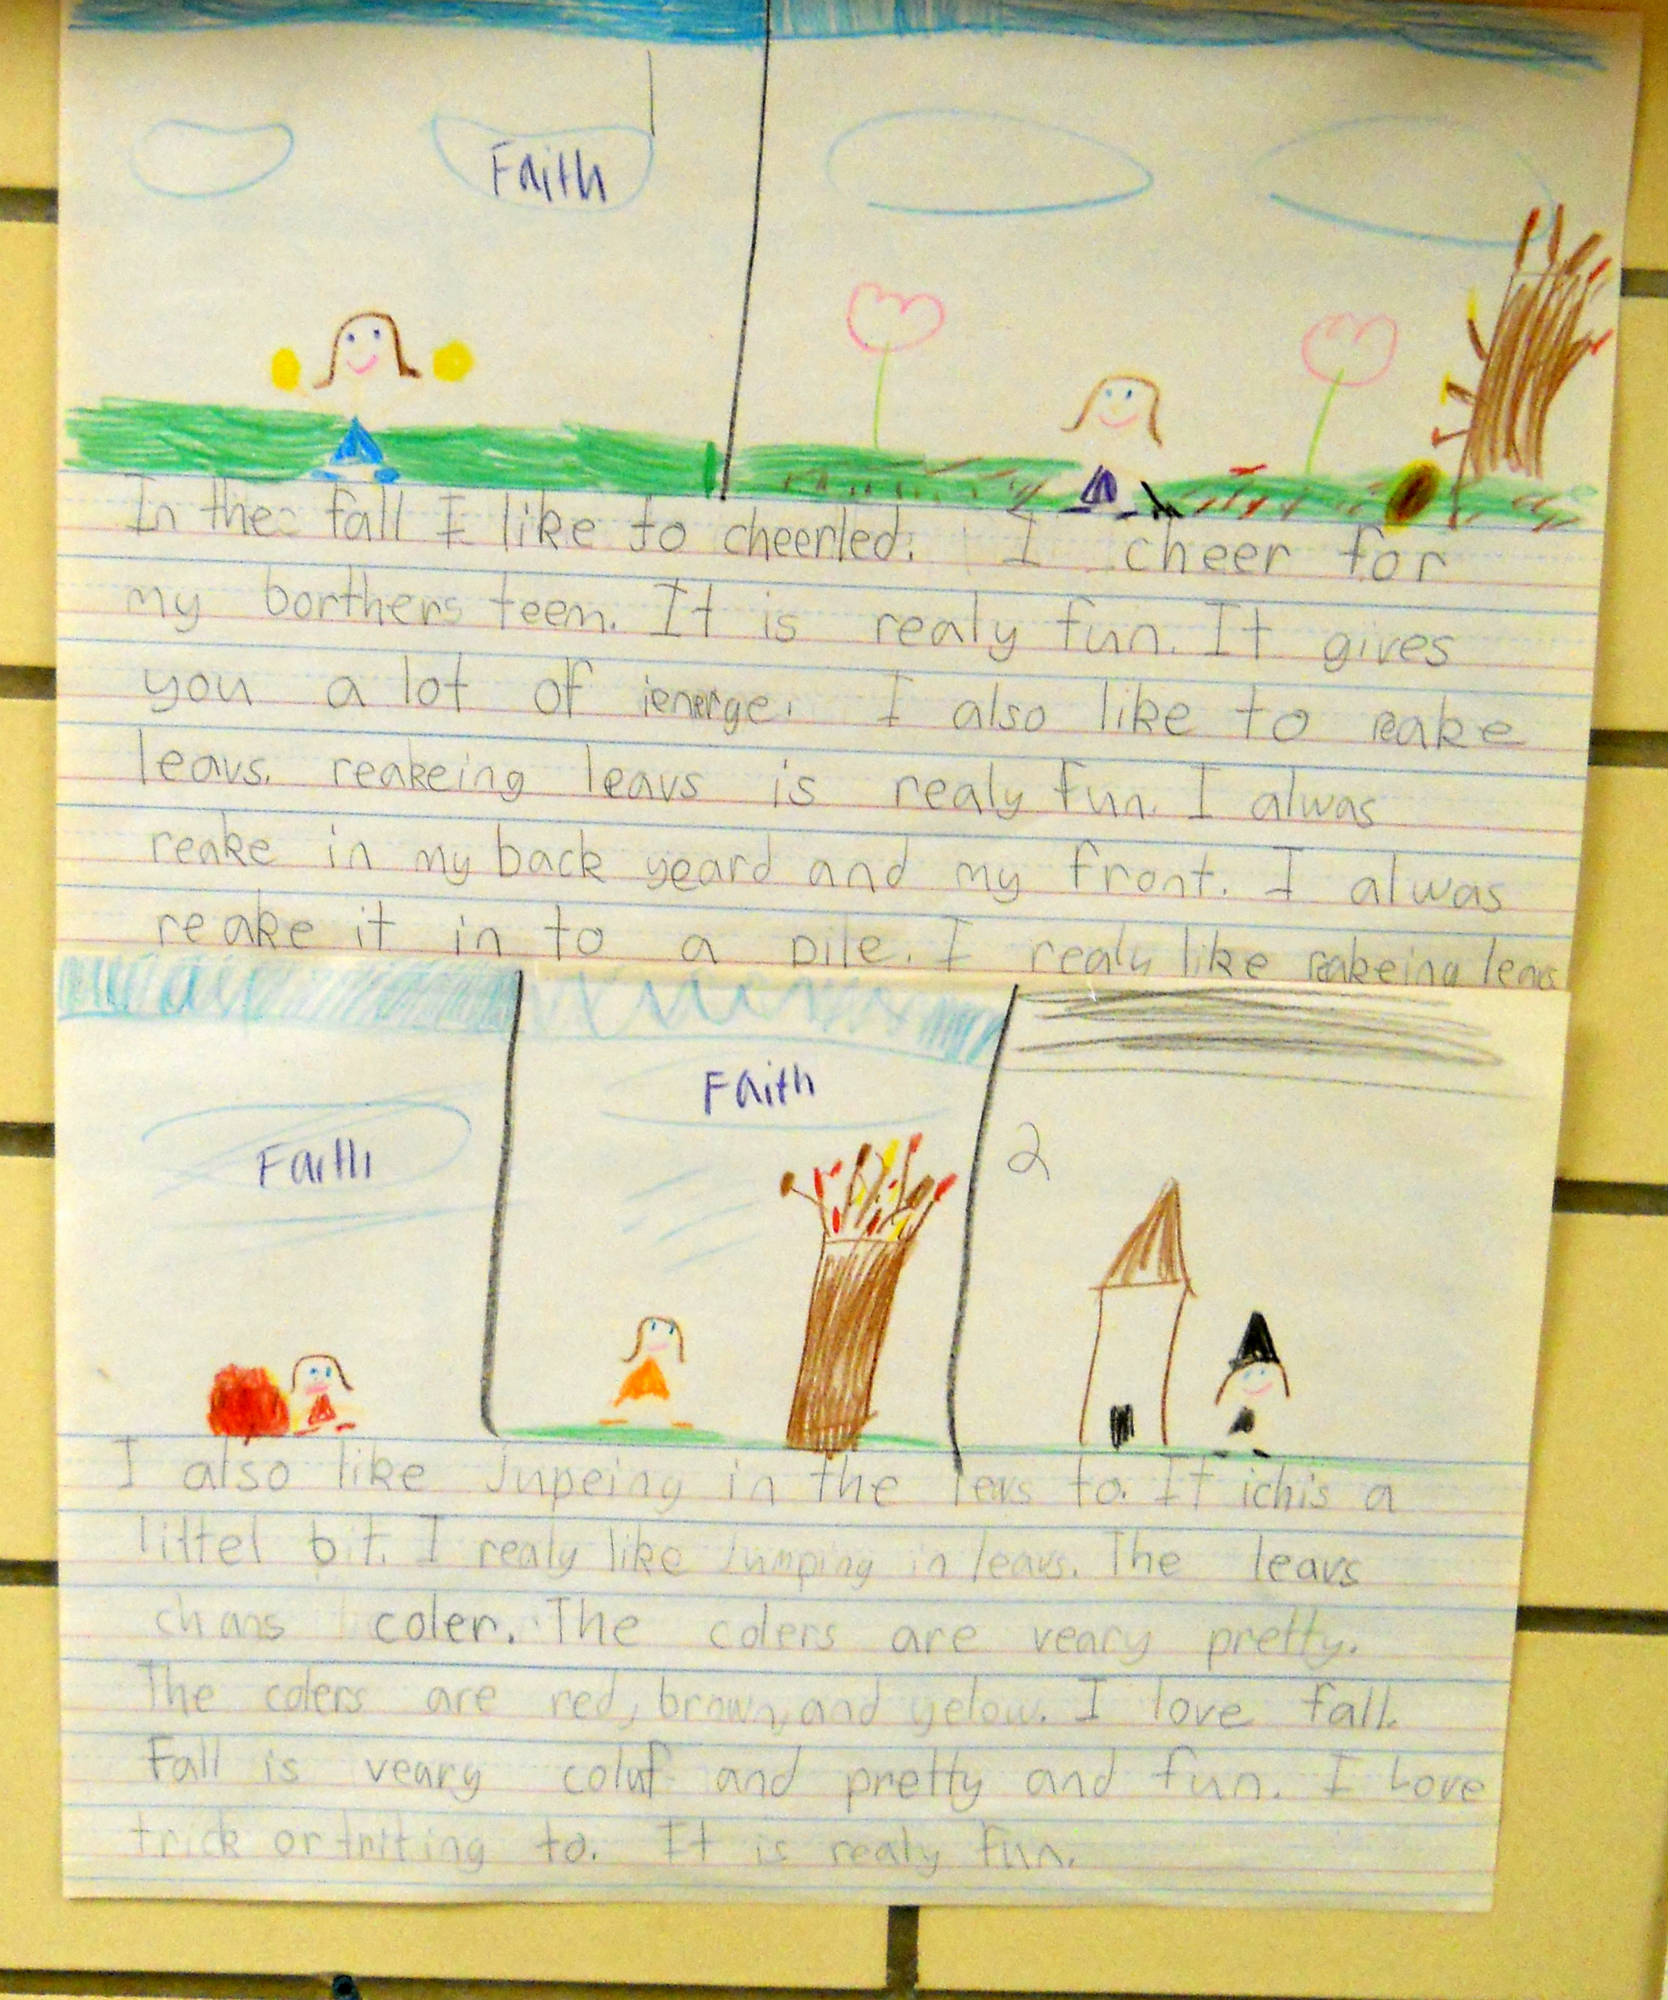 Faith
In the fall I like to cheerled. I cheer for
my borthers teem. It is realy fun. It gives
you a lot of ienerge. I also like to reake
leavs. reakeing leavs is realy fun. I alwas
reake in my back yeard and my front. I alwas
reake it in to a pile. I realy like reakeing leavs
Faith
Faith
2
I also like Jupeing in the levs to. It ichis a
littel bit. I realy like Jumping in leavs. The leavs
chans coler. The colers are veary pretty.
The colers are red, brown, and yelow. I love fall.
Fall is veary coluf and pretty and fun. I Love
trick or triting to. It is realy fun.